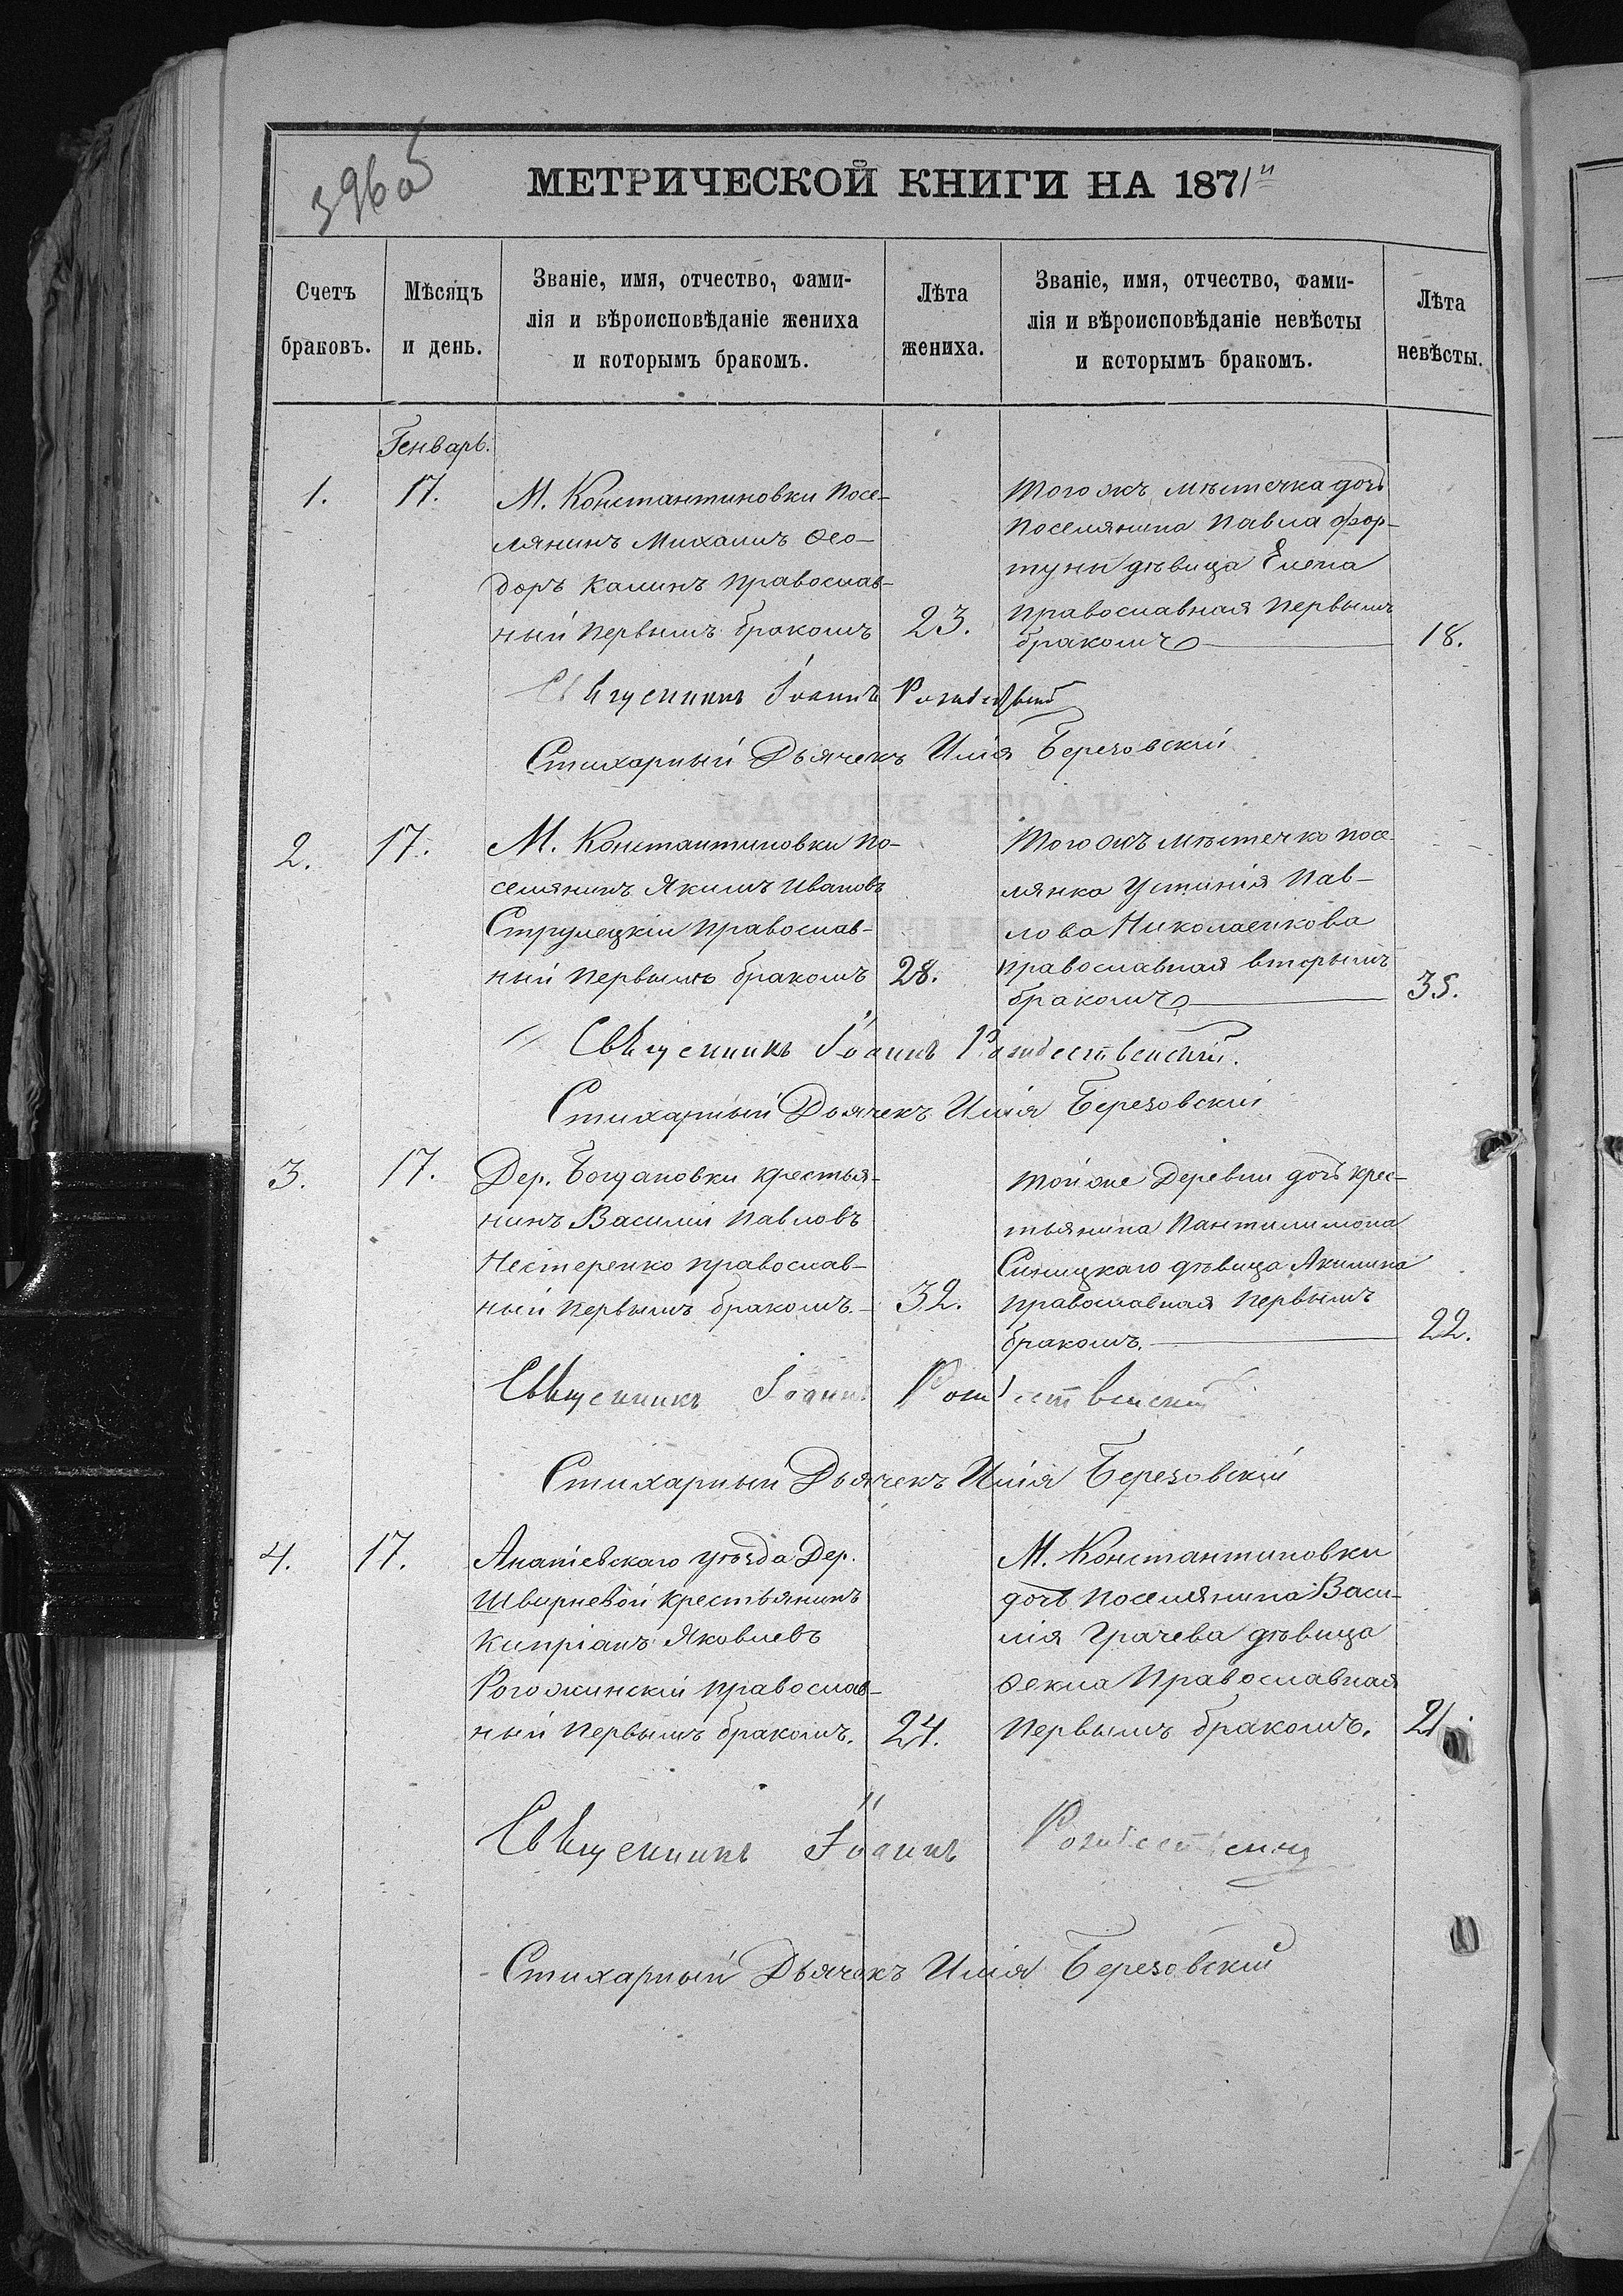 396об
МЕТРИЧЕСКОЙ КНИГИ НА 1871й
Счетъ браковъ.
Мѣсяцъ и день.
Званіе, имя, отчество, фами-
лія и вѣроисповѣданіе жениха
и которымъ бракомъ.
Лѣта жениха.
Званіе, имя, отчество, фами-
лія и вѣроисповѣданіе невѣсты
и которымъ бракомъ.
Лѣта невѣсты.
Генварь.
1.
17.
М. Константиновки посе-
лянинъ Михаилъ Ѳео-
доръ Калинъ православ-
ный первымъ бракомъ
23.
Того жъ мѣстечка дочь
поселянина Павла Фор-
туны дѣвица Елена
православная первымъ
бракомъ
18.
Свѣщенникъ Іоаннъ
Стихарный Дьячекъ Илія Березовскій
2.
17.
М. Константиновки по-
селянинъ Якимъ Ивановъ
Струлецкій православ-
ный первымъ бракомъ
28.
Того жъ мѣстечка посе-
лянка Устинія Пав-
лова Николаенкова
православная вторымъ
бракомъ
35.
Свѣщенникъ Іоаннъ Рождественскій.
Стихарный Дьячекъ Илія Березовскій
3.
17.
Дер. Богдановки крестья-
нинъ Василій Павловъ
Нестеренко православ-
ный первымъ бракомъ.
32.
Той же Деревни дочь крес-
тьянина Пантилимона
Синицкаго дѣвица Акилина
православная первымъ
бракомъ.
22.
Свѣщенникъ Іоаннъ Рождественскій
Стихарный Дьячекъ Илія Березовскій
4.
17.
Ананіевскаго уѣзда Дер.
Швырневой крестьянинъ
Кипріанъ Яковлевъ
Рогожинскій православ-
ный первымъ бракомъ.
24.
М. Константиновки
дочь поселянина Васи-
лія Грачева дѣвица
Ѳекла Православная
первымъ бракомъ.
21.
Свѣщенникъ Іоаннъ Рождественскій
Стихарный Дьячекъ Илія Березовскій